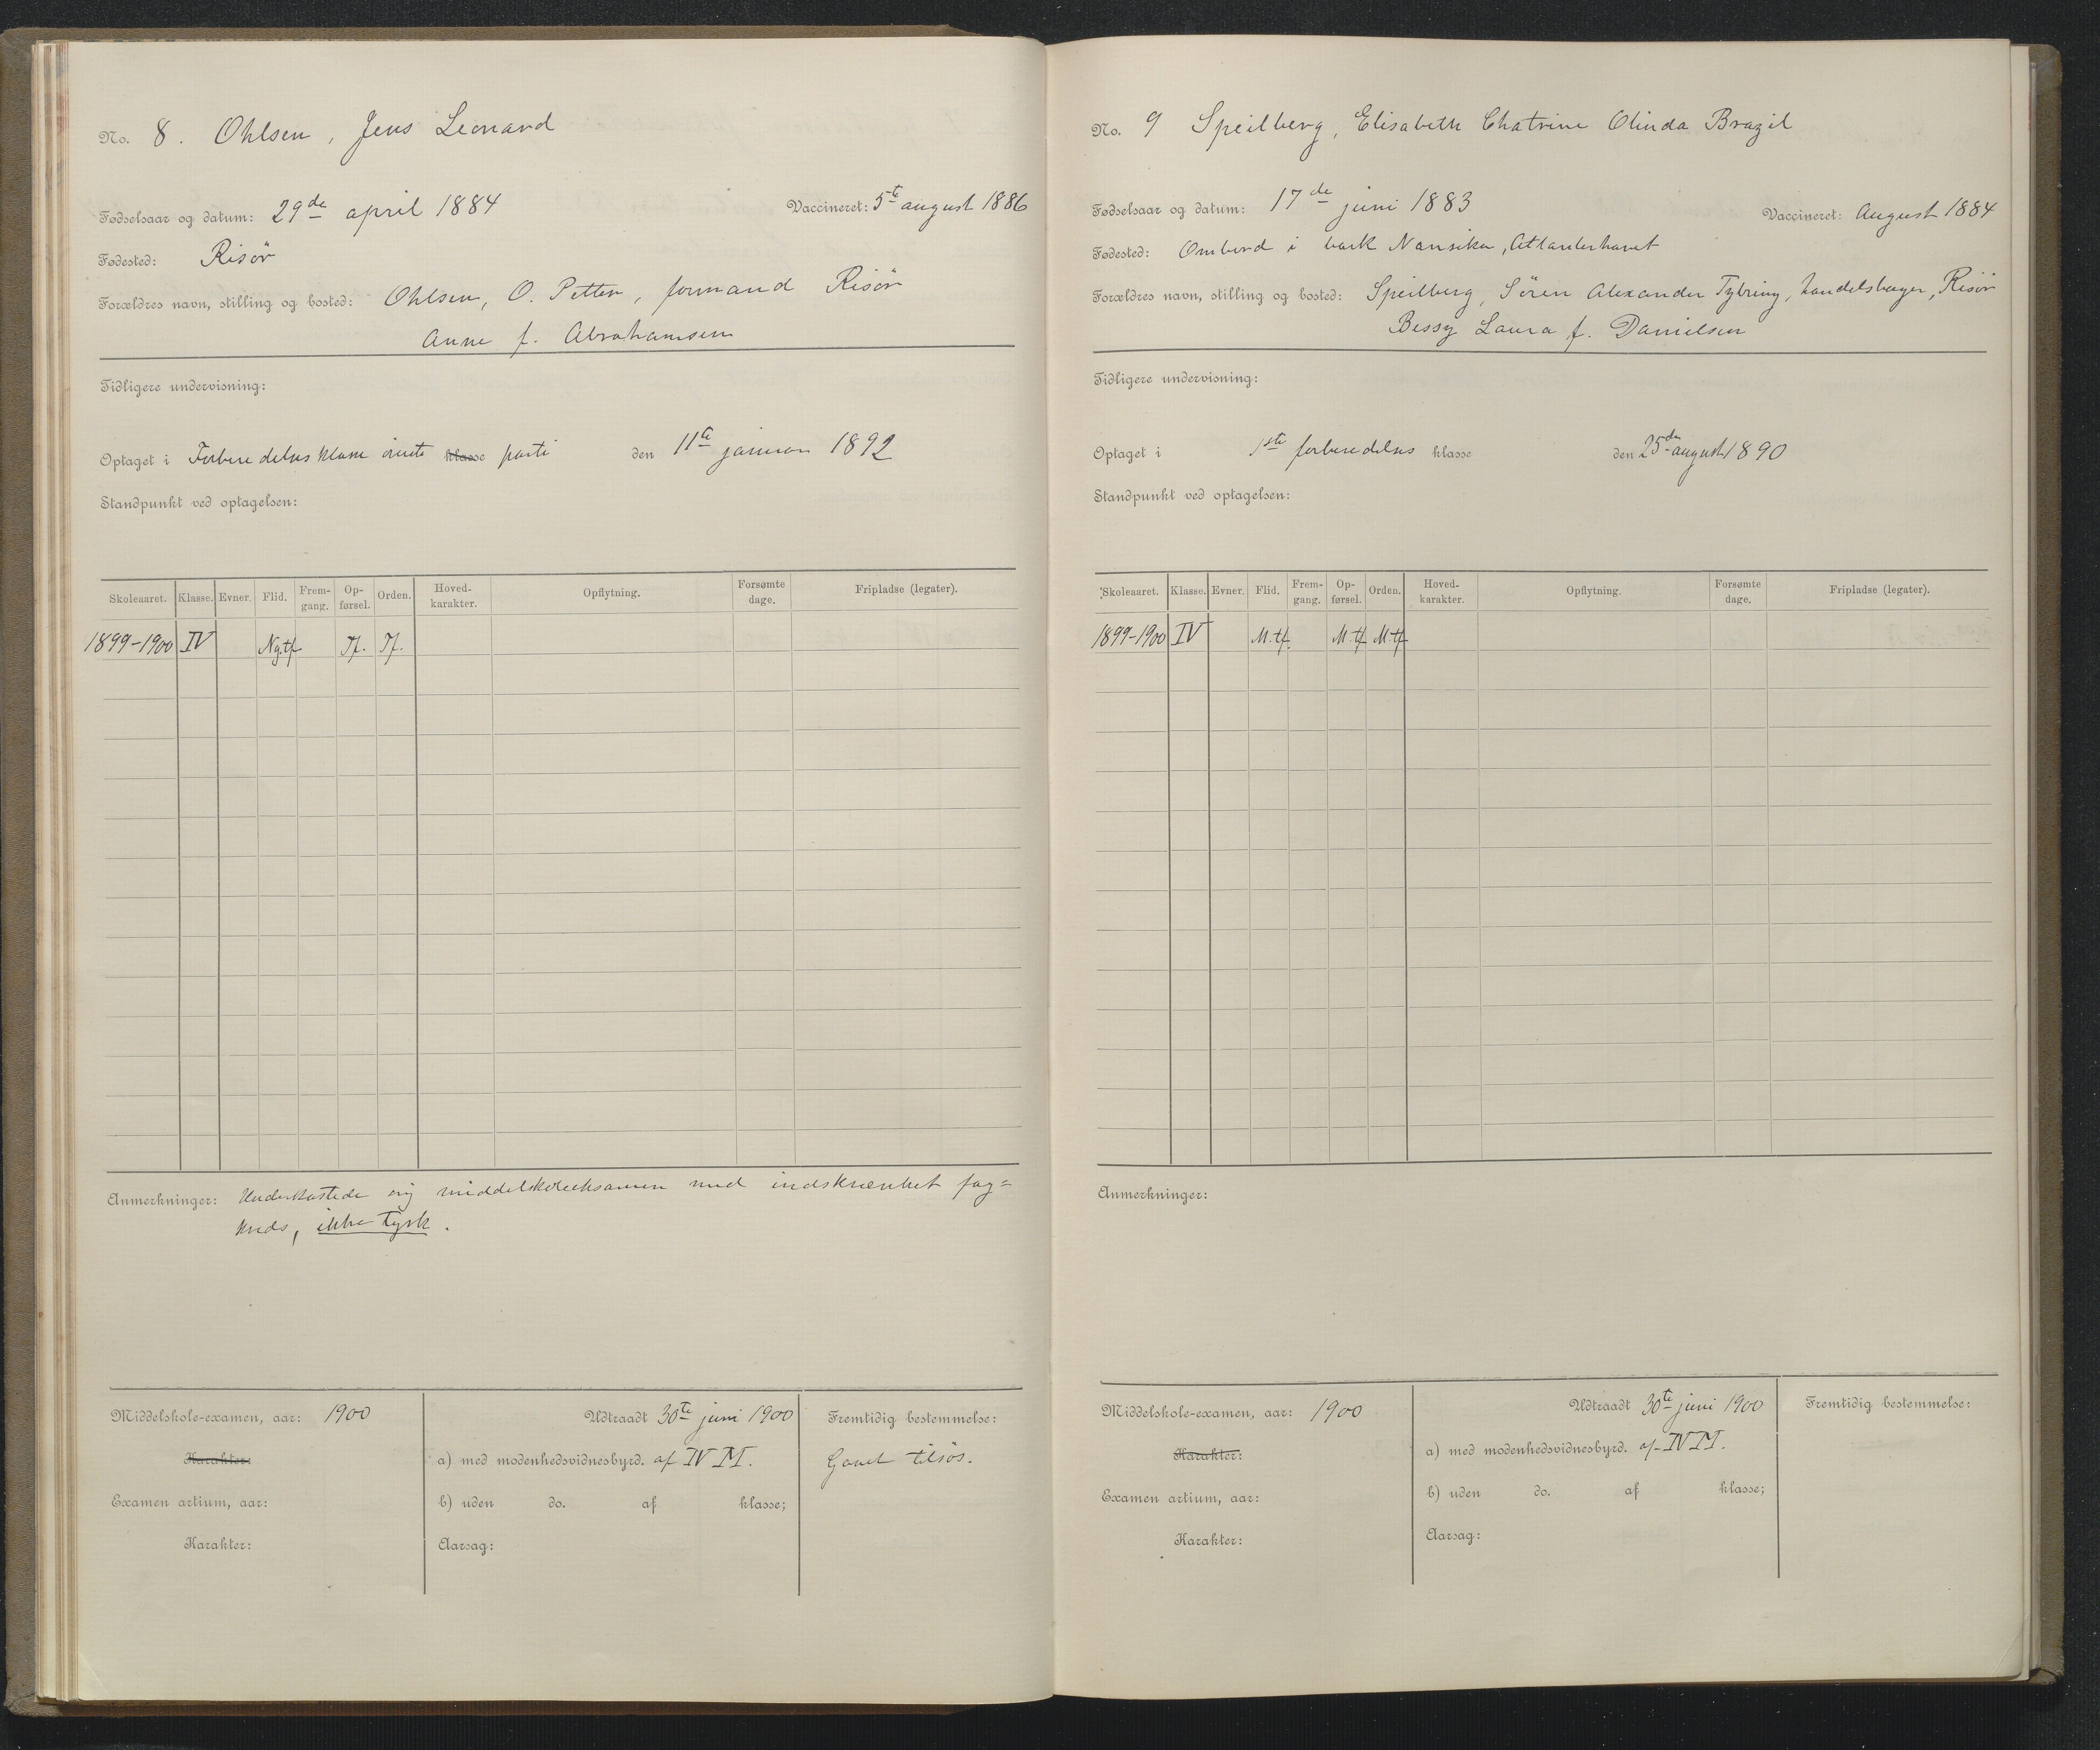 No. 8. Ohlsen, Jens Leonard
Fødselsaar og datum: 29de april 1884 Vaccineret: 5te august 1886
Fødested: Risör
Forældres navn, stilling og bosted: Ohlsen, O. Petter, formand Risör
Anne f. Abrahamsen
Tidligere undervisning:
Optaget i Forberedelsesklasse överste klasse parti den 11te januar 1892
Standpunkt ved optagelsen:
Skoleaaret. Klasse. Evner. Flid. Frem-gang. Op-førsel. Orden. Hoved-karakter. Opflytning. Forsømte dage. Fripladse (legater).
1899-1900 IV Ng.tf. Tf. Tf.
Anmerkninger: Underkastede sig middelskoleeksamen med indskrænket fag=
kreds, ikke tysk.
Middelskole-examen, aar: 1900 Udtraadt 30te juni 1900 Fremtidig bestemmelse:
Karakter: a) med modenhedsvidnesbyrd. af IV M. Gaaet tilsös.
Examen artium, aar: b) uden do. af klasse;
Karakter: Aarsag:
No. 9 Speilberg, Elisabeth Chatrine Olinda Brazil
Fødselsaar og datum: 17de juni 1883 Vaccineret: August 1884
Fødested: Ombord i bark Nansika, Atlanterhavet
Forældres navn, stilling og bosted: Speilberg, Sören Alexander Tybring, handelsborger, Risör
Bessy Laura f. Danielsen
Tidligere undervisning:
Optaget i 1ste forberedelses klasse den 25de august 1890
Standpunkt ved optagelsen:
Skoleaaret. Klasse. Evner. Flid. Frem-gang. Op-førsel. Orden. Hoved-karakter. Opflytning. Forsømte dage. Fripladse (legater).
1899-1900 IV M.tf. M.tf M.tf
Anmerkninger:
Middelskole-examen, aar: 1900 Udtraadt 30te juni 1900 Fremtidig bestemmelse:
Karakter: a) med modenhedsvidnesbyrd. af IV M.
Examen artium, aar: b) uden do. af klasse;
Karakter: Aarsag: